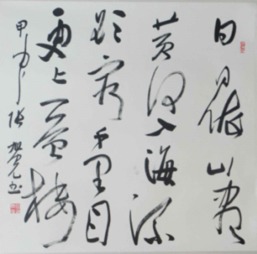 白日依山尽
黄河入海流
欲穷千里目
更上一层楼
甲午